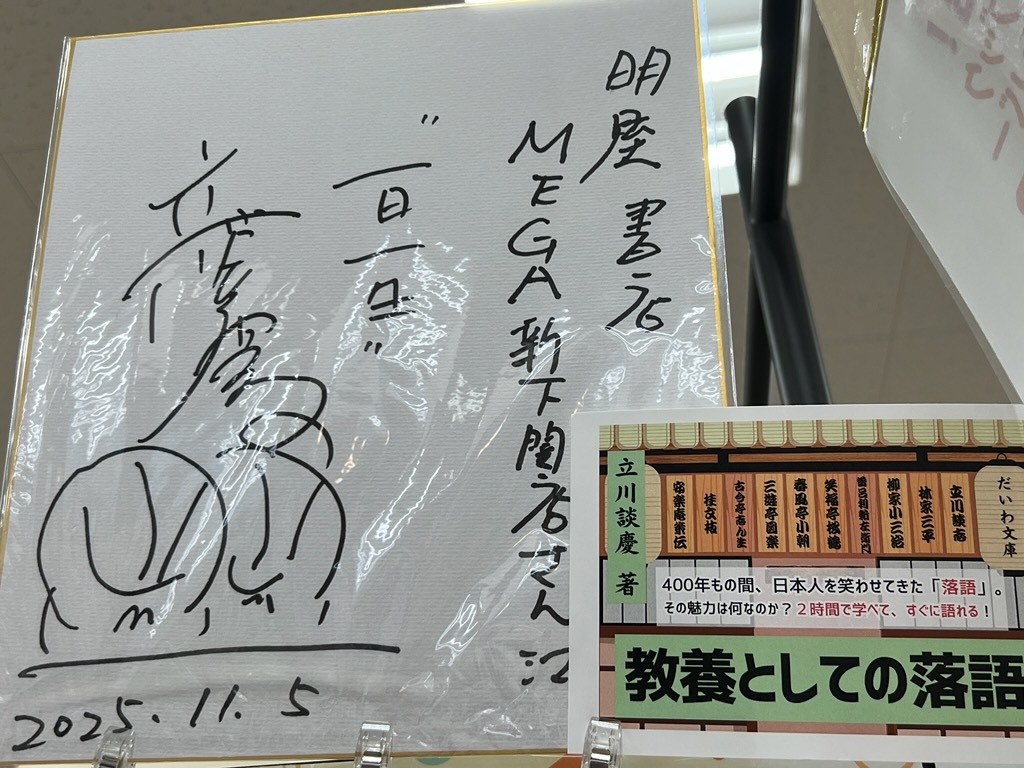 明屋書店
MEGA新下関店さん江
"一日一生"
2025.11.5
だいわ文庫
立川談志
林家三平
柳家小三治
曽呂利新左衛門
笑福亭鶴瓶
春風亭小朝
三遊亭圓楽
古今亭志ん生
桂文枝
安楽庵策伝
立川談慶 著
400年もの間、日本人を笑わせてきた「落語」。
その魅力は何なのか？2時間で学べて、すぐに語れる！
教養としての落語